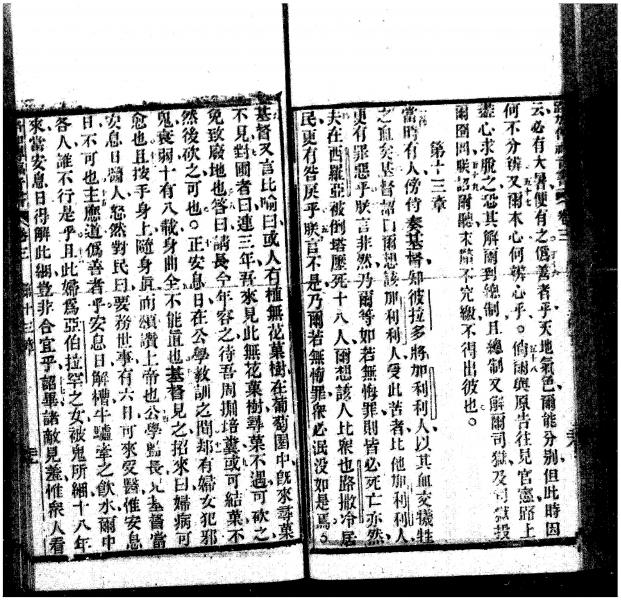 云必有大暑便有之僞善者乎天地氣色爾能分別但此時因
何不分辨又爾本心何辨心乎倘爾與原告往見官憲路上
盡心求脫之恐其解爾到總制且總制又解爾司獄及司獄投
爾囹圄朕語爾聽未償不完繳不得出彼也
第十三章
當時有人傍侍奏基督知彼拉多將加利利人以其血交犧牲
之血矣基督諂曰爾想該加利利人受此苦者比他加利利人
更有罪惡乎朕言非然乃爾等如若無悔罪則皆必死亡亦然
夫在西羅亞被倒塔壓死十八人爾想該人比衆也路撒冷居
民更有咎戾乎朕言不是乃爾若無悔罪衆必泯没如是焉
基督又言比喻曰或人有種無花菓樹在葡萄園中旣來尋菓
不見對圃者曰連三年吾來見此無花菓樹尋菓不遇可砍之
免致廢地也答曰請長今年容之待吾周掘培糞或可結菓不
然後砍之可也正安息日在公學教訓之間却有婦女犯邪
鬼衰弱十有八載身曲全不能直也基督見之招來曰婦病可
愈也且按手身上隨身直而頌讚上帝也公學監長見基督當
安息日瘳人忽然對民曰要務世事有六日可來受醫惟安息
日不可也主應道僞善者乎安息日解槽牛驢牽之飲水爾中
各人誰不行是乎且此婦爲亞伯拉罕之女被鬼所綑十八年
來當安息日得解此綑豈非合宜乎語畢諸敵見羞惟衆人看
卷三
第十三章